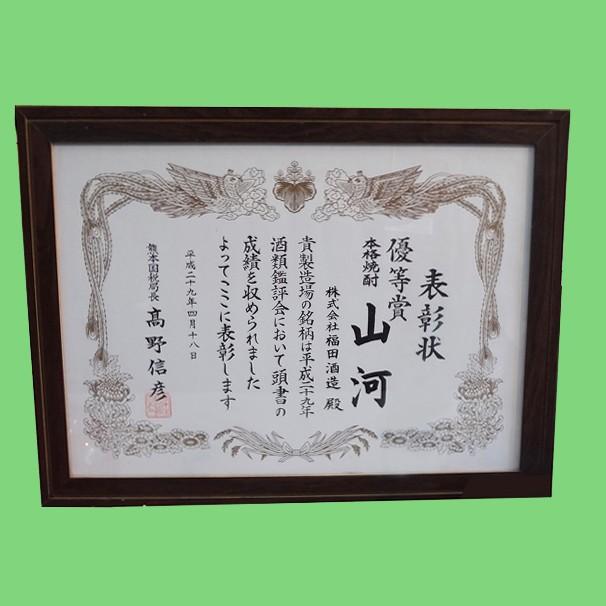 表彰状
優等賞
本格焼酎
山河
株式会社福田酒造 殿
貴製造場の銘柄は平成二十九年
酒類鑑評会において頭書の
成績を収められました
よってここに表彰します
平成二十九年四月十八日
熊本国税局長 髙野信彦